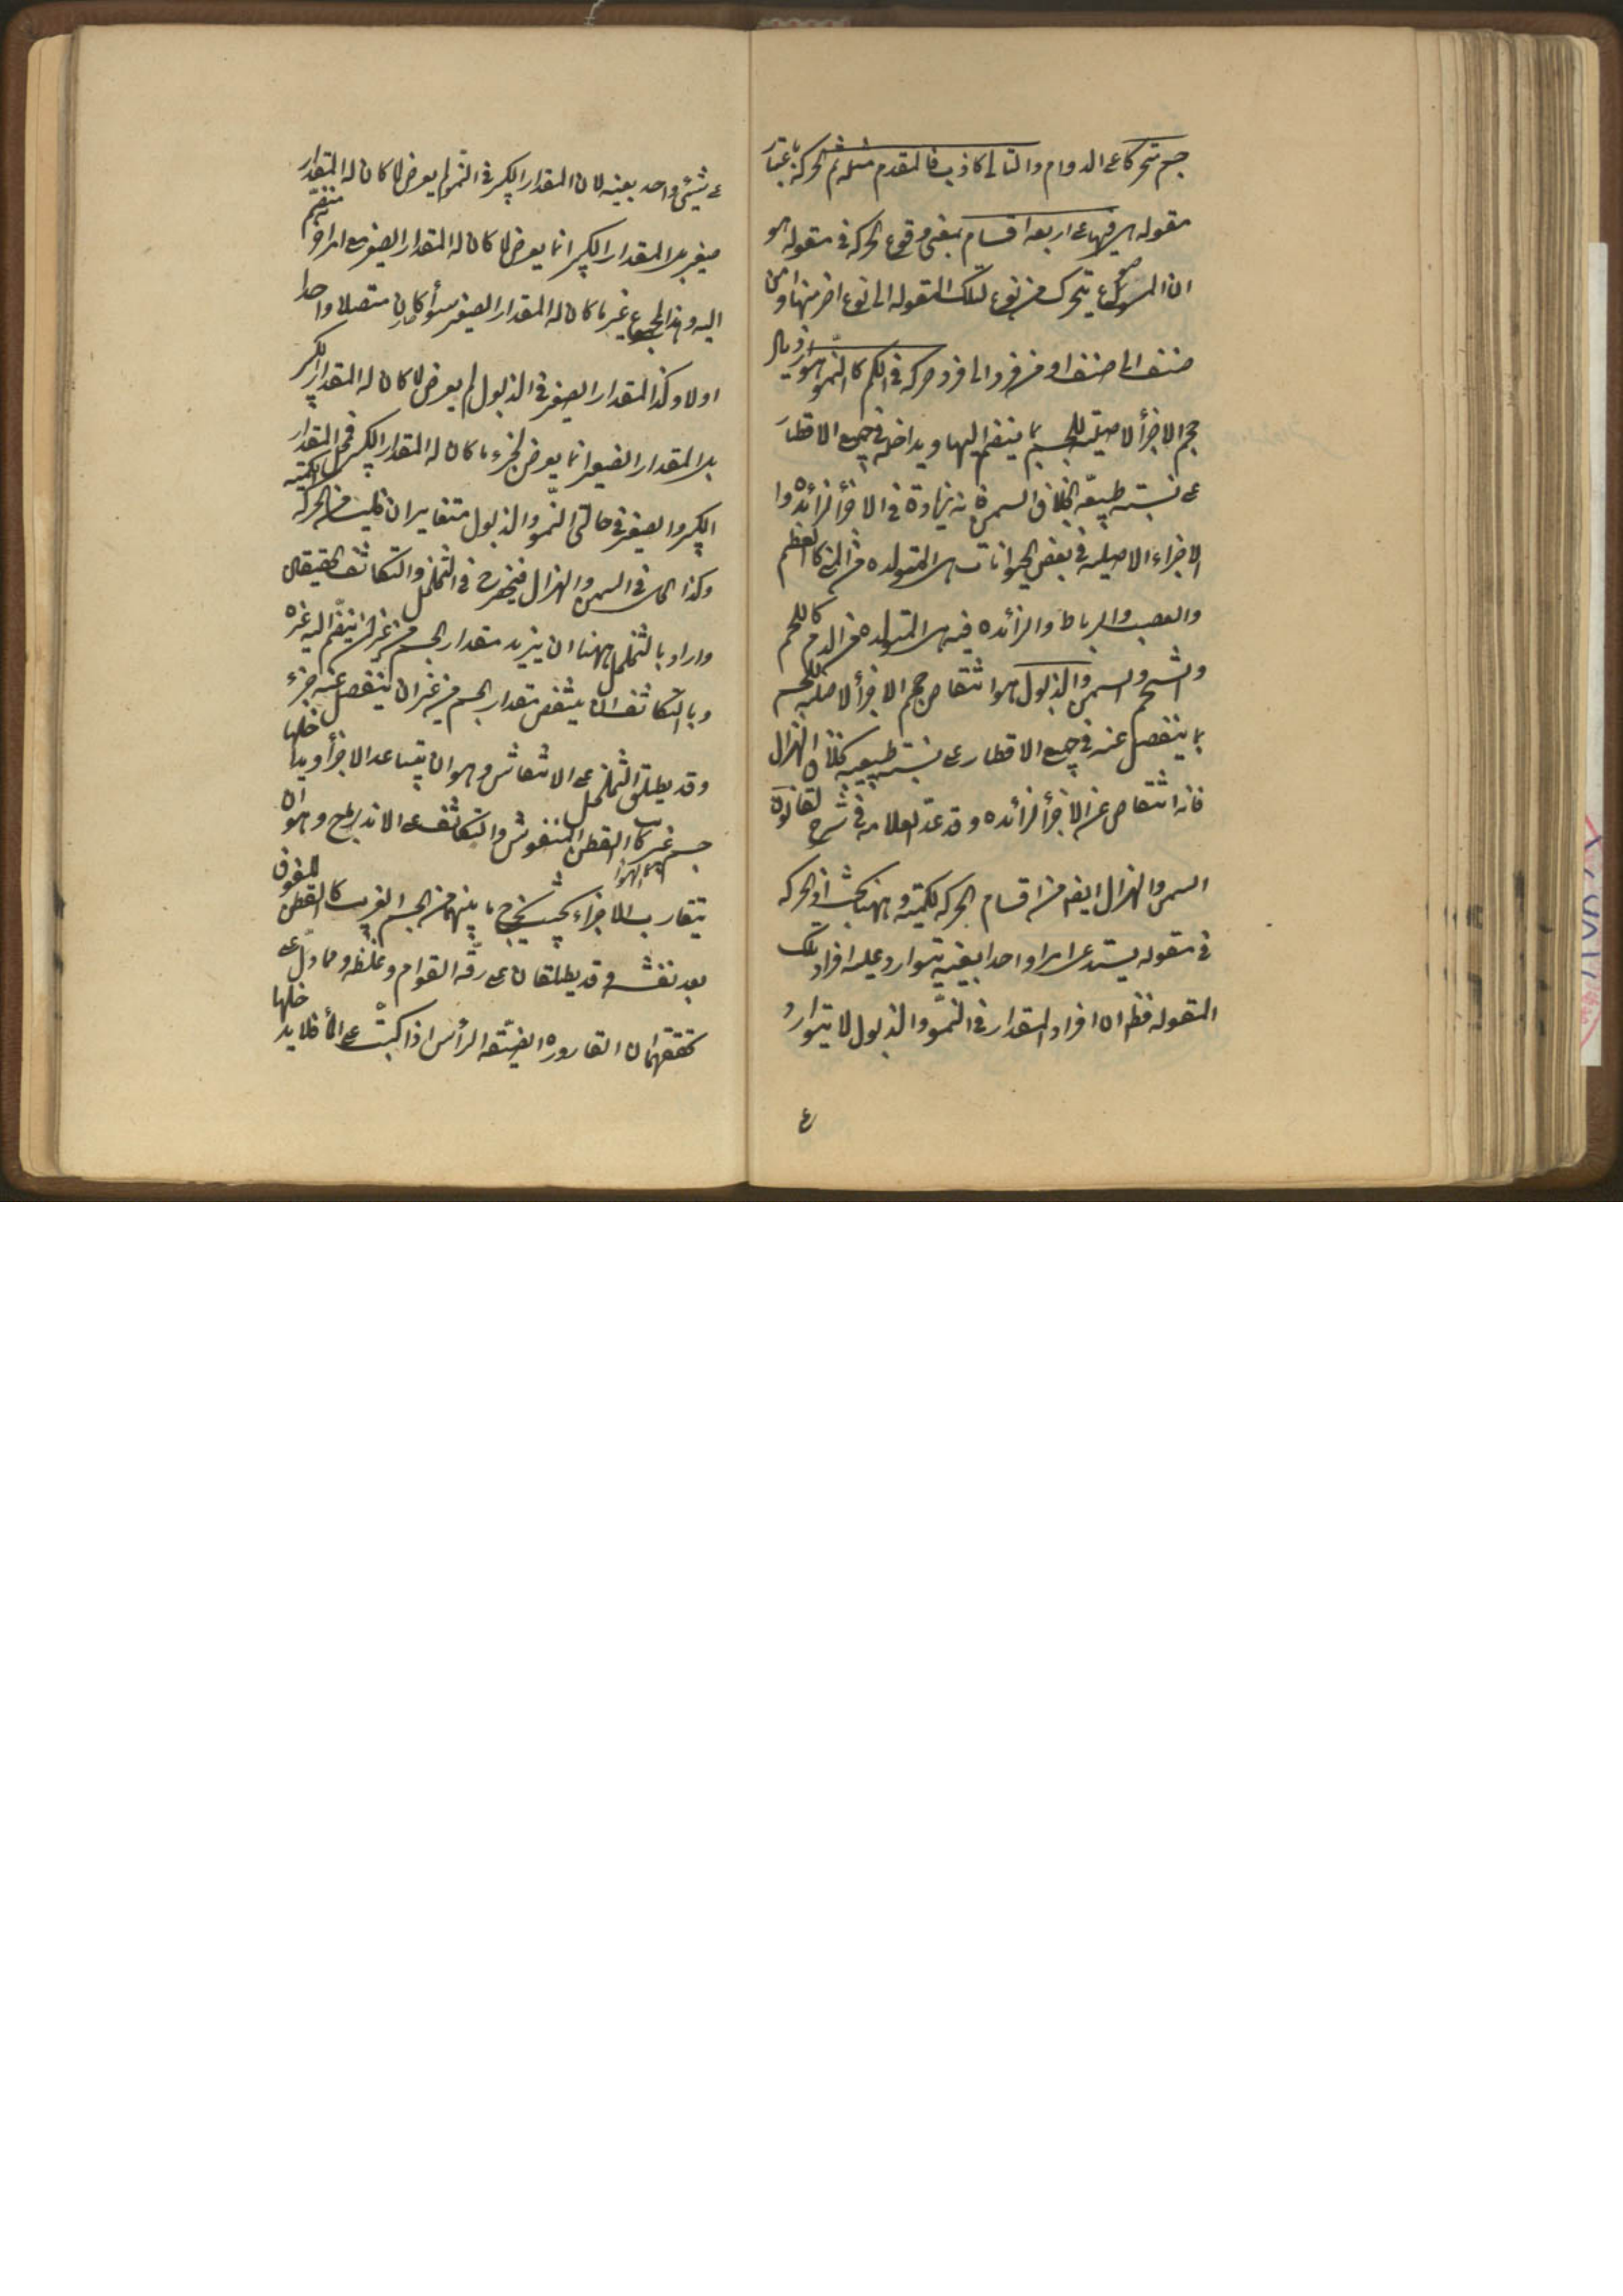 جسم متحركا على الدوام والتالى كاذب فالمقدم مثله ثم الحركة باعتبار
مقوله هى فيها على اربعة اقسام بمعنى وقوع الحركة فى مقوله هو
ان الموضوع يتحرك من نوع تلك المقوله الى نوع اخر منها او من
صنف الى صنف او من فرد الى فرد حركه فى الكم كالنمو هو ازدياد
حجم الاجزأ الاصليته للجسم بما ينضم اليها ويداخله فى جميع الاقطار
على نسبته طبيعته بخلاف السمن فانه زيادة فى الاجزأ الزائده وا
لاجزاء الاصليه فى بعض الحيوانات هى المتولده من المنى كالعظم
والعصب والرباط والزائده فيه هى المتولده من الدم كاللحم
والشحم والسمن والذبول هو انتقاص حجم الاجزأ الاصليه للجسم
بما ينفصل عنه فى جميع الاقطار على نسبته طبيعيه بخلاف الهزال
فانه انتقاص عن الاجزأ الزائده وقد عد العلامه فى شرح القانون
السمن والهزال ايضا من اقسام الحركه الكميته وههنا بحث اذ الحركه
فى مقوله يستدعى امرا واحدا بعينه يتوارد عليه افراد تلك
المقوله فظهر ان افراد المقدار فى النمو والذبول لا يتوارد
ع
على شيئ واحد بعينه لان المقدار الكبير فى النمو لم يعرض لما كان له المقدار
صغير بل المقدار الكبير انما يعرض لما كان له المقدار الصغير مع امر اخر منضم
اليه وهذا المجموع غير ما كان له المقدار الصغير سوأ كان متصلا واحدا
اولا وكذا المقدار الصغير فى الذبول لم يعرض لما كان له المقدار الكبير
بل المقدار الصغير انما يعرض لجزء ما كان له المقدار الكبير فمحل المقدار
الكبير والصغير فى حالتى النمو والذبول متغايران فليسا من الحركه الكميته
وكذا الحال فى السمن والهزال فينحصر فى التخلخل والتكاثف الحقيقيان
واراد بالتخلخل ههنا ان يزيد مقدار الجسم من غير ان ينضم اليه غيره
وبالتكاثف ان ينتقص مقدار الجسم من غير ان ينفصل عنه جزء
وقد يطلق التخلخل على الانتفاش وهو ان يتباعد الاجزأ ويداخلها
جسم غريب كالقطن المنفوش والتكاثف على الاندماج وهو ان
يتقارب الاجزاء بحيث يخرج ما بينها من الجسم الغريب كالقطن الملفوف
بعد نفشه وقد يطلقان على رقة القوام وغلظه ومما دل على
تحققهما ان القاروره الضيقه الرأس اذا كبت على المأ فلا يدخلها